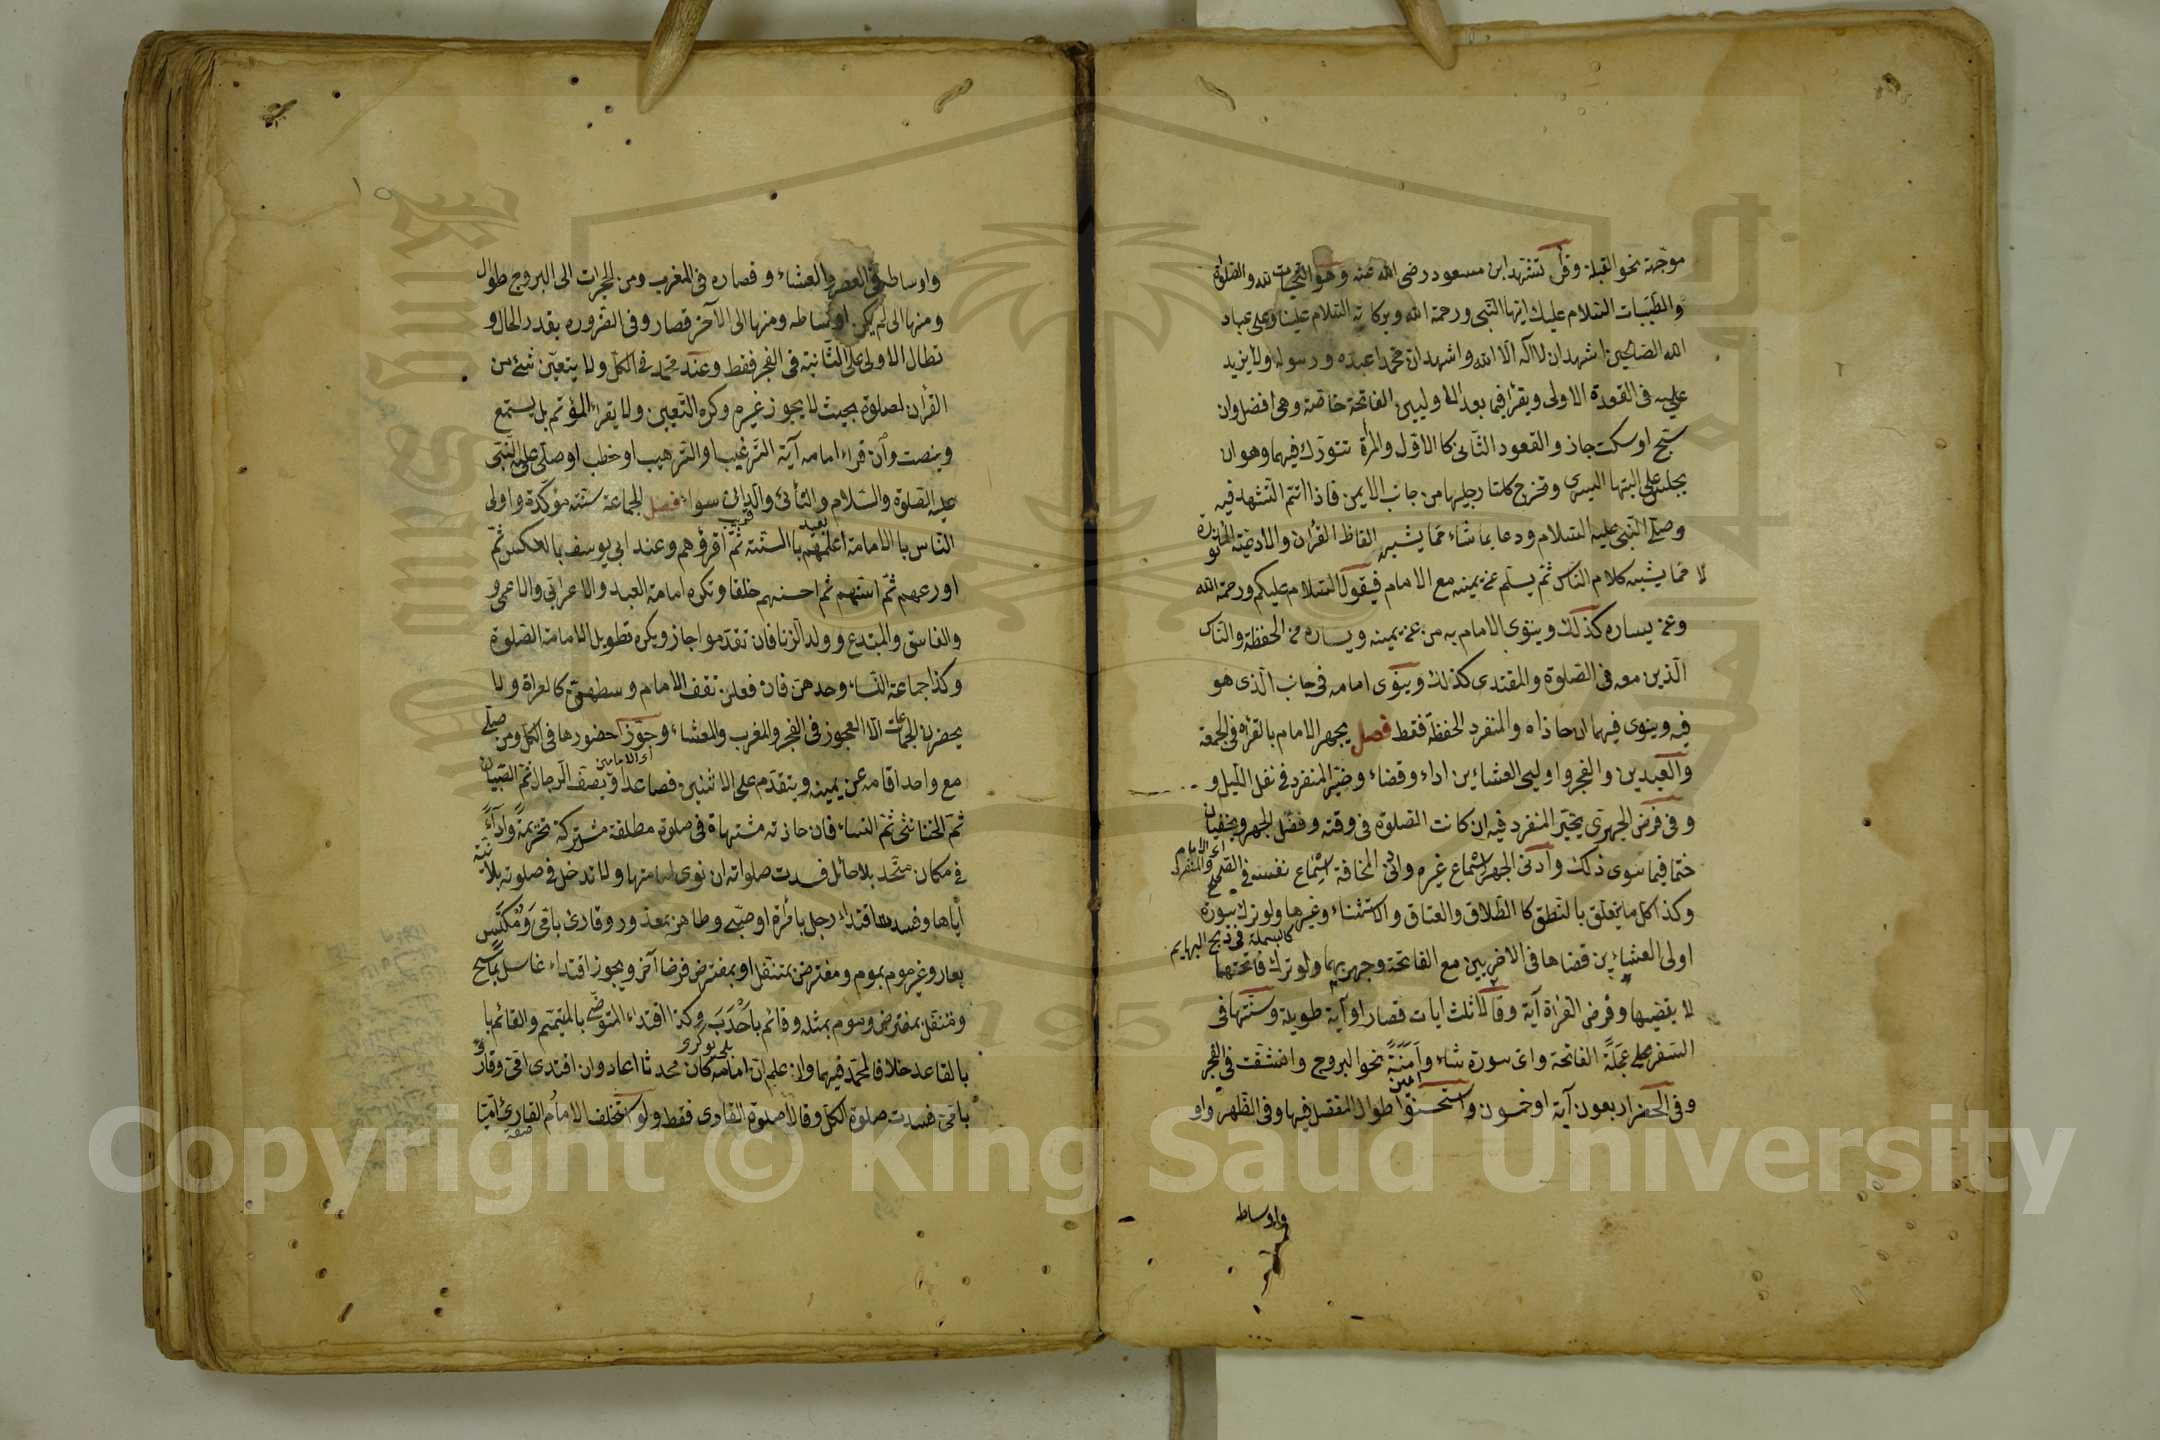 موجّهة نحو القبلة وقرأ تشهد ابن مسعود رضى الله عنه وهو التحيات لله والصلوات
والطيبات السلام عليك ايها النبى ورحمة الله وبركاته السلام علينا وعلى عباد
الله الصالحين اشهد ان لا اله الا الله واشهد ان محمدا عبده ورسوله ولا يزيد
عليه فى القعدة الاولى ويقرأ فيما بعد الاوليين الفاتحة خاصة وهى افضل وان
سبّح او سكت جاز والقعود الثانى كالاول والمرأة تتورّك فيهما وهو ان
تجلس على اليتها اليسرى وتخرج كلتا رجليها من جانب الايمن فاذا اتمّ التشهد فيه
وصلّى النبى عليه السلام ودعا بما شاء مما يشبه الفاظ القرأن والادعية المأثورة
لا مما يشبه كلام الناس ثمّ يسلّم عن يمينه مع الامام فيقول السلام عليكم ورحمة الله
وعن يساره كذلك وينوى الامام به من عن يمينه ويساره من الحفظة والناس
الّذين معه فى الصلوة والمقتدى كذلك وينوى امامه فى جانب الّذى هو
فيه وينوى فيهما ان حاذاه والمنفرد الحفظة فقط فصل يجهر الامام بالقراءة فى الجمعة
والعيدين والفجر واوليى العشاءين اداء وقضاء وخيّر المنفرد فى نفل الليل و
وفى فرض الجهرى يخيّر المنفرد فيه ان كانت الصلوة فى وقته وفضّل الجهر ويخفيان
اى الامام والمنفرد
حتما فيما سوى ذلك وادنى الجهر اسماع غيره وادنى المخافة اسماع نفسه فى الصحيح
وكذا كل ما يتعلّق بالنطق كالطلاق والعتاق والاستثناء وغيرها ولو ترك سورة
كالبسملة فى ذبح البهايم
اولى العشاءين قضاها فى الاخريين مع الفاتحة وجهر بهما ولو ترك فاتحتهما
لا يقضيها وفرض القراءة آية وقالا ثلث ايات قصار او آية طويلة وسنّتها فى
السفر عجلة الفاتحة واىّ سورة شاء وأمنة نحو البروج وانشقت فى الفجر
وفى الحضر اربعون آية او خمسون واستحسنوا طوال المفصل فيها وفى الظهر واو
واوساطه
واوساطه فى العصر والعشاء وقصاره فى المغرب ومن الحجرات الى البروج طوال
ومنها الى لم يكن اوساطه ومنها الى الآخر قصار وفى الضرورة بقدر الحال و
تطال الاولى على الثانية فى الفجر فقط وعند محمد فى الكل ولا يتعيّن شئ من
القرأن لصلوة بحيث لا يجوز غيره وكره التعيين ولا يقراء المؤتم بل يستمع
وينصت وان قراء امامه آية الترغيب او الترهيب او خطب او صلّى على النبى
عليه الصلوة والسلام والنائى والدانى سواء فصل الجماعة سنّة مؤكّدة واولى
بعيد قريب
الناس بالامامة اعلمهم بالسنّة ثمّ اقرؤهم وعند ابى يوسف بالعكس ثمّ
اورعهم ثمّ اسنهم ثم احسنهم خلقا وتكره امامة العبد والاعرابى والاعمى و
والفاسق والمبتدع وولد الزنا فان تقدّموا جاز ويكره تطويل الامامة الصلوة
وكذا جماعة النساء وحدهنّ فان فعلن تقف الامام وسطهنّ كالعراة ولا
يحضرن الجماعات الا العجوز فى الفجر والمغرب والعشاء وجوّزا حضورها فى الكل ومن صلّى
اى الامامين
مع واحد اقامه عن يمينه ويتقدّم على الاثنين فصاعدا ويصف الرجال ثم الصبيان
ثمّ الخناثى ثمّ النساء فان حاذته مشتهاة فى صلوة مطلقة مشتركة تحريمة واداءً
فى مكان متحد بلا حائل فسدت صلواته ان نوى امامتها ولا تدخل فى صلوته بلا نيّة
ايّاها وفسد اقتداء رجل بامرأة او صبى وطاهر بمعذور وقارى بامّى ومكتس
بعار وغير موم بموم ومفترض بمتنفل او بمفترض فرضا آخر ويجوز اقتداء غاسل بماسح
ومتنفل بمفترض وموم بمثله وقائم باحدب وكذا اقتداء المتوضّى بالمتيمّم والقائم با
بالقاعد خلافا لمحمد فيهما وان علم ان امامه كان محدثا اعاد وان اقتدى امّى وقارى
بامّى فسدت صلوة الكل وقالا صلوة القارى فقط ولو استخلف الامام القارئ امّيّا